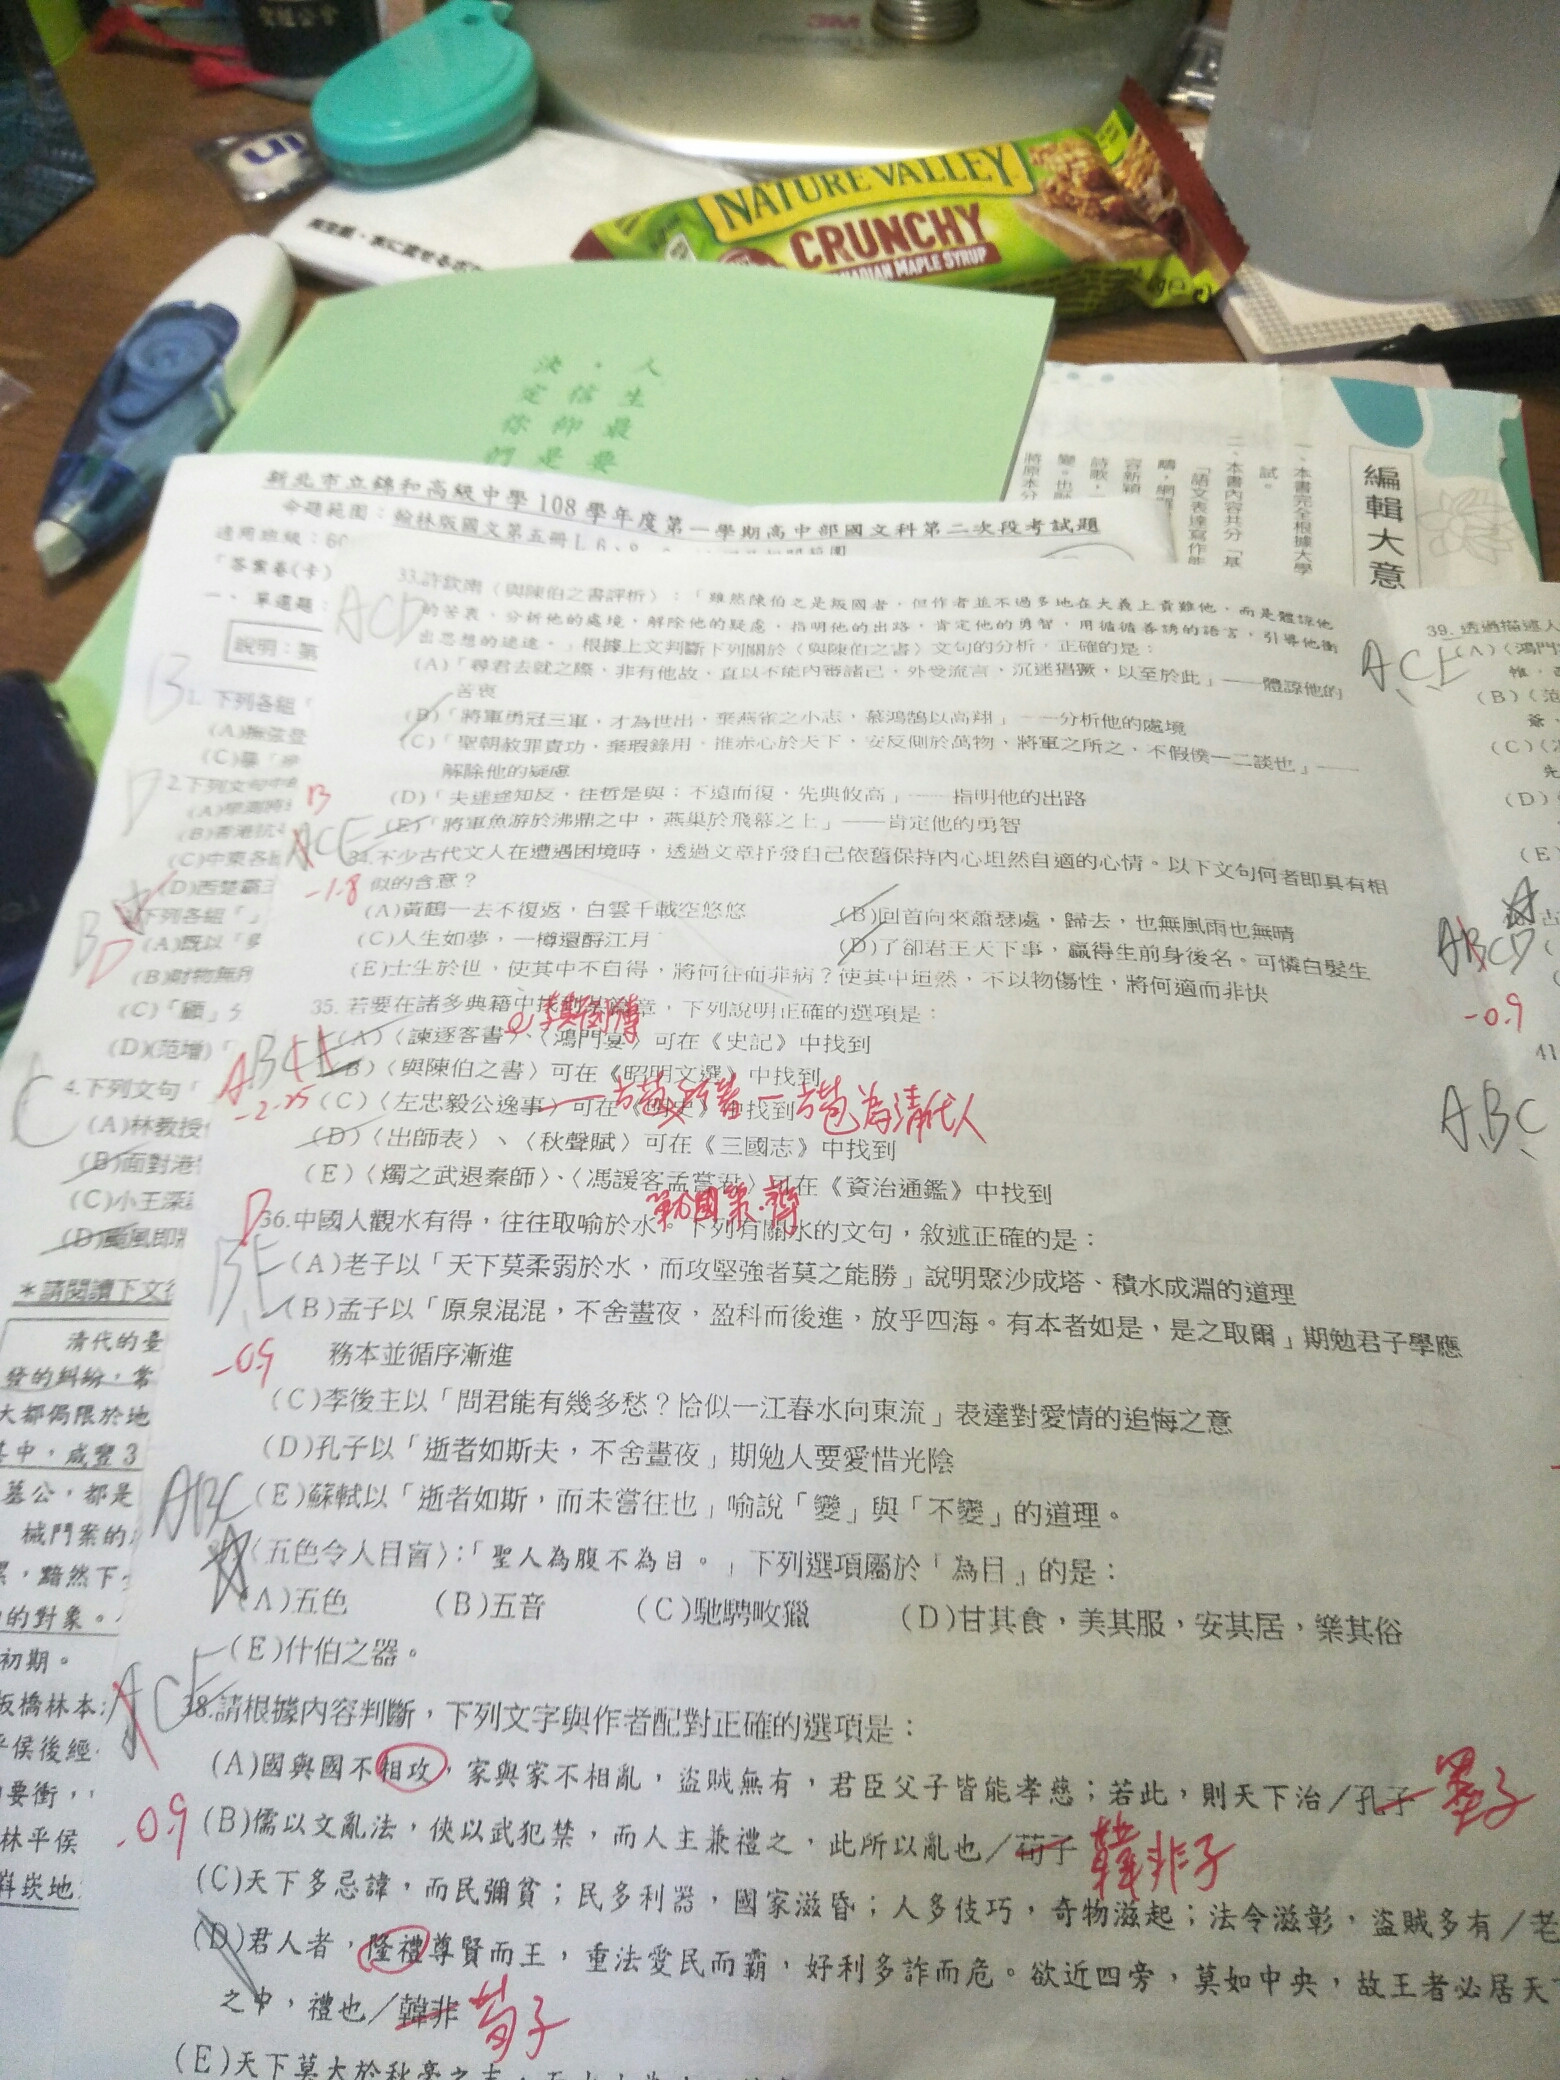 3M
NATURE VALLEY
CRUNCHY
CANADIAN MAPLE SYRUP
人生最要
・信仰是
決定你們
編輯大意
一、本書完全根據大學
試。
二、本書內容共分「基
「語文表達寫作能
新北市立錦和高級中學108學年度第一學期高中部國文科第二次段考試題
命題範圍：翰林版國文第五冊L6、8
適用班級：60
「答案卷(卡)
一、單選題：
說明：第
B
1. 下列各組「
(A)撫弦登
D
2.下列文句中
(B)香港抗
(C)中東各
(D)西楚霸王
B D
下列各組「
(A)既以「
(B)財物無所
(C)「顧」
(D)(范增)「
C
4.下列文句「
(A)林教授
(B)面對港
(C)小王深
(D)颱風即將
＊請閱讀下文
清代的臺
發的糾紛，常
大都侷限於地
其中，咸豐3
墓公，都是
械鬥案的
，黯然下
的對象。
初期。
板橋林本
平侯後經
要衝，
林平侯
崁地
ACD
33.許欽南〈與陳伯之書評析〉：「雖然陳伯之是叛國者，但作者並不過多地在大義上責難他，而是體諒他
的苦衷，分析他的處境，解除他的疑慮，指明他的出路，肯定他的勇智，用循循善誘的語言，引導他衝
出思想的迷途。」根據上文判斷下列關於〈與陳伯之書〉文句的分析，正確的是：
(A)「尋君去就之際，非有他故，直以不能內審諸己，外受流言，沉迷猖獗，以至於此」——體諒他的
苦衷
(B)「將軍勇冠三軍，才為世出，棄燕雀之小志，慕鴻鵠以高翔」——分析他的處境
(C)「聖朝赦罪責功，棄瑕錄用，推赤心於天下，安反側於萬物，將軍之所之，不假僕一二談也」——
解除他的疑慮
(D)「夫迷途知反，往哲是與；不遠而復，先典攸高」——指明他的出路
(E)「將軍魚游於沸鼎之中，燕巢於飛幕之上」——肯定他的勇智
B
ACE
-1.8
34.不少古代文人在遭遇困境時，透過文章抒發自己依舊保持內心坦然自適的心情。以下文句何者即具有相
似的含意？
(A)黃鶴一去不復返，白雲千載空悠悠
(B)回首向來蕭瑟處，歸去，也無風雨也無晴
(C)人生如夢，一樽還酹江月
(D)了卻君王天下事，贏得生前身後名。可憐白髮生
(E)士生於世，使其中不自得，將何往而非病？使其中坦然，不以物傷性，將何適而非快
35. 若要在諸多典籍中找到某篇章，下列說明正確的選項是：
(A)〈諫逐客書〉、〈鴻門宴〉可在《史記》中找到
ABCE
A
-2.25
(B)〈與陳伯之書〉可在《昭明文選》中找到
(C)〈左忠毅公逸事〉可在《明史》中找到
方苞為清代人
(D)〈出師表〉、〈秋聲賦〉可在《三國志》中找到
(E)〈燭之武退秦師〉、〈馮諼客孟嘗君〉可在《資治通鑑》中找到
戰國策.齊
D
BE
-0.9
36.中國人觀水有得，往往取喻於水。下列有關水的文句，敘述正確的是：
(A)老子以「天下莫柔弱於水，而攻堅強者莫之能勝」說明聚沙成塔、積水成淵的道理
(B)孟子以「原泉混混，不舍晝夜，盈科而後進，放乎四海。有本者如是，是之取爾」期勉君子學應
務本並循序漸進
(C)李後主以「問君能有幾多愁？恰似一江春水向東流」表達對愛情的追悔之意
(D)孔子以「逝者如斯夫，不舍晝夜」期勉人要愛惜光陰
(E)蘇軾以「逝者如斯，而未嘗往也」喻說「變」與「不變」的道理。
ABC
〈五色令人目盲〉：「聖人為腹不為目。」下列選項屬於「為目」的是：
(A)五色 (B)五音 (C)馳騁畋獵 (D)甘其食，美其服，安其居，樂其俗
(E)什伯之器。
ACE
-0.9
38.請根據內容判斷，下列文字與作者配對正確的選項是：
(A)國與國不相攻，家與家不相亂，盜賊無有，君臣父子皆能孝慈；若此，則天下治／孔子 墨子
(B)儒以文亂法，俠以武犯禁，而人主兼禮之，此所以亂也／荀子 韓非子
(C)天下多忌諱，而民彌貧；民多利器，國家滋昏；人多伎巧，奇物滋起；法令滋彰，盜賊多有／老
(D)君人者，隆禮尊賢而王，重法愛民而霸，好利多詐而危。欲近四旁，莫如中央，故王者必居天
之中，禮也／韓非 荀子
(E)天下莫大於秋毫之末，
ACE
39. 透過描述人
(A)〈鴻門
(B)〈范
爺，
(C)〈
先
(D)
(E)
ABCD
-0.9
41
ABC